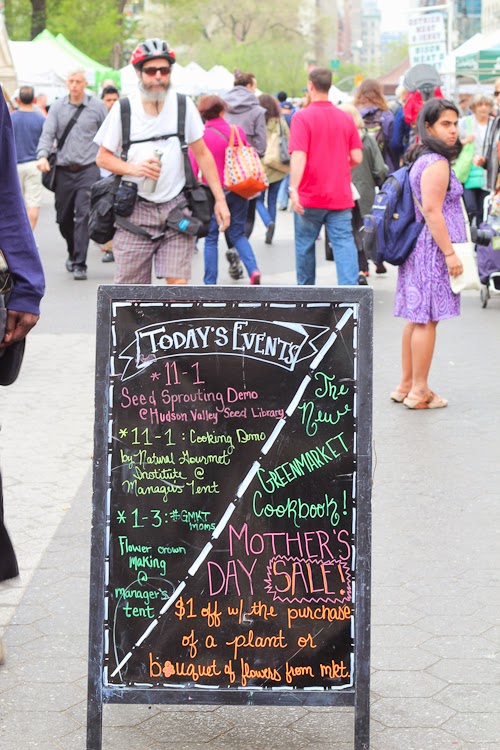 TODAY'S EVENTS
*11-1
Seed Sprouting Demo
@Hudson Valley Seed Library
*11-1: Cooking Demo
by Natural Gourmet
Institute @
Manager's Tent
*1-3: #GMKT
moms
Flower crown
Making
@
manager's
tent
The
New
GREENMARKET
Cookbook!
MOTHER'S
DAY SALE!
$1 off w/ the purchase
of a plant or
bouquet of flowers from mkt.